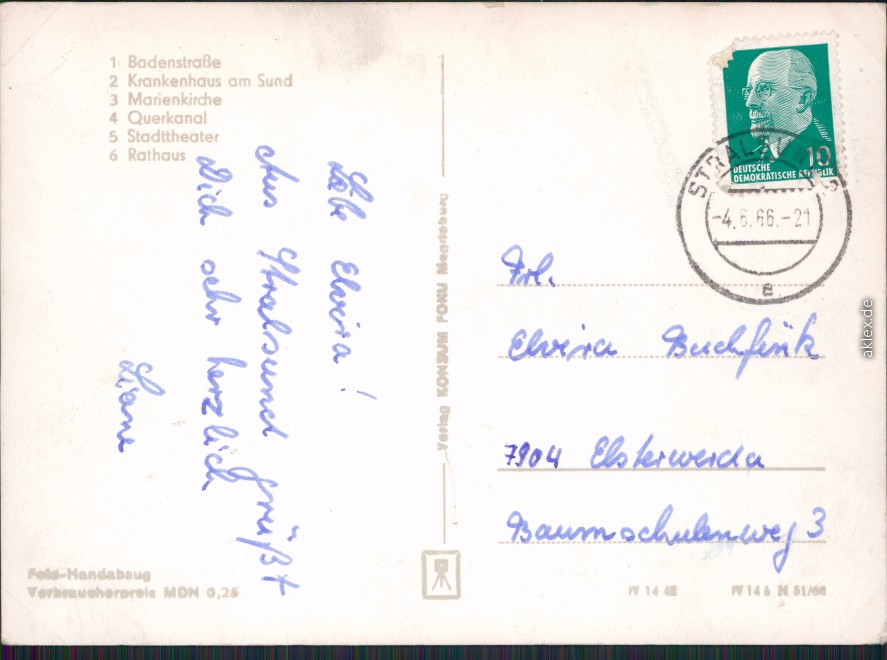 1 Badenstraße
2 Krankenhaus am Sund
3 Marienkirche
4 Querkanal
5 Stadttheater
6 Rathaus
Liebe Elvira!
Aus Stralsund grüßt
Dich sehr herzlich
Liane
Foto-Handabzug
Verbraucherpreis MDN 0,25
Verlag KONSUM FOKU Magdeburg
10
DEUTSCHE
DEMOKRATISCHE REPUBLIK
STRALSUND
-4.6.66.-21
a
Frl.
Elvira Buchfink
7904 Elsterwerda
Baumschulenweg 3
IV 14 48
IV 14 6 N 51/66
aklex.de